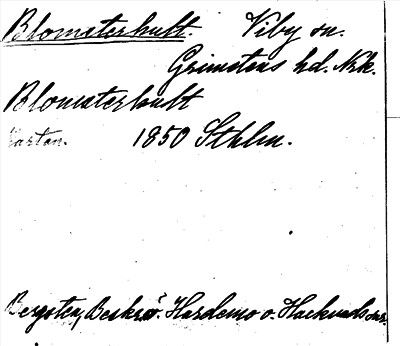 Blomsterhult. Viby sn.
Grimstens hd. Nrk.
Blomsterhult
Kartan. 1850 Sthlm.
Bergsten, Beskr. ö. Hardemo o. Hackvads snr.